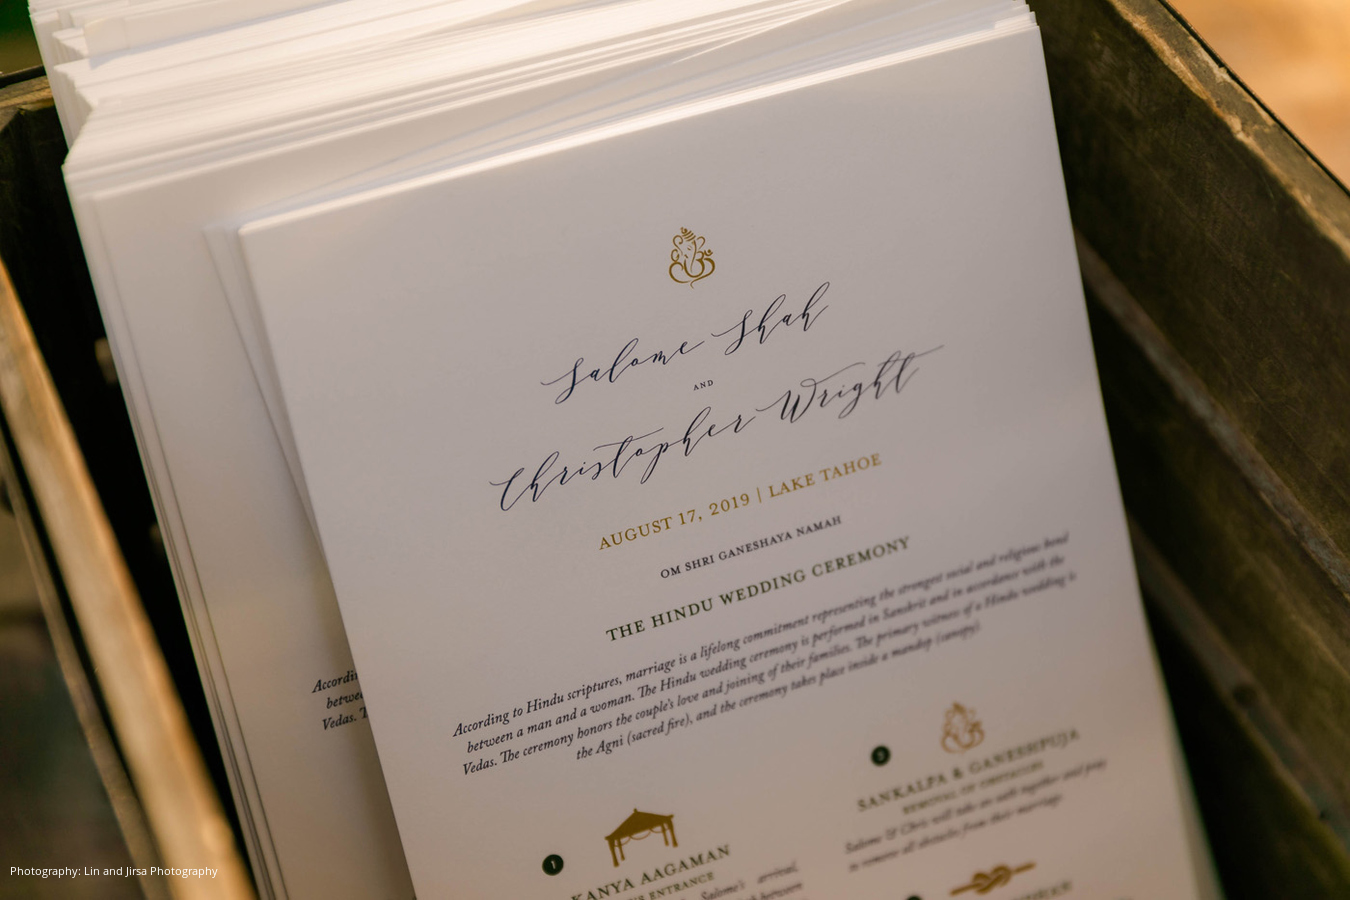 Salome Shah
AND
Christopher Wright
AUGUST 17, 2019 | LAKE TAHOE
OM SHRI GANESHAYA NAMAH
THE HINDU WEDDING CEREMONY
According to Hindu scriptures, marriage is a lifelong commitment representing the strongest social and religious bond
between a man and a woman. The Hindu wedding ceremony is performed in Sanskrit and in accordance with the
Vedas. The ceremony honors the couple's love and joining of their families. The primary witness of a Hindu wedding is
the Agni (sacred fire), and the ceremony takes place inside a mandap (canopy).
1
KANYA AAGAMAN
ENTRANCE
Salome's arrival,
between
2
SANKALPA & GANESHPUJA
REMOVAL OF OBSTACLES
Salome & Chris will take an oath together and pray
to remove all obstacles from their marriage.
Accordin
betwee
Vedas. T
Photography: Lin and Jirsa Photography